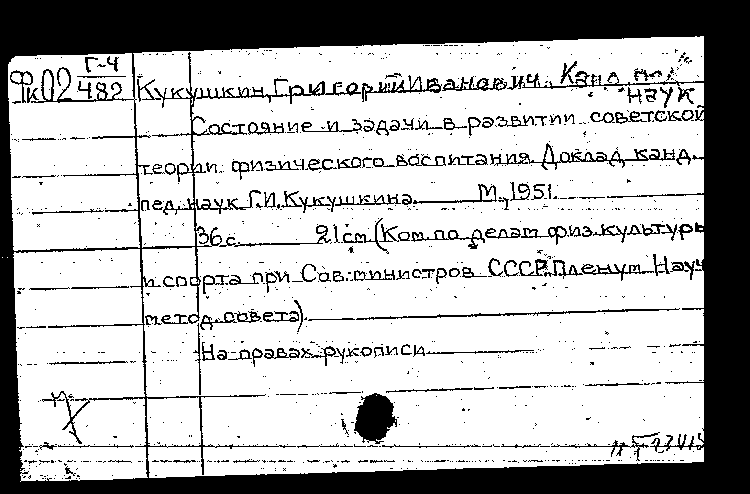 Г-4
Фк02 482 Кукушкин, Григорий Иванович, Канд. пед.
наук
Состояние и задачи в развитии советской
теории физического воспитания. Доклад канд.
пед. наук Г.И. Кукушкина. М., 1951.
36 с. 21 см (Ком. по делам физ. культуры
и спорта при Сов. министров СССР. Пленум Науч
метод. совета).
На правах рукописи